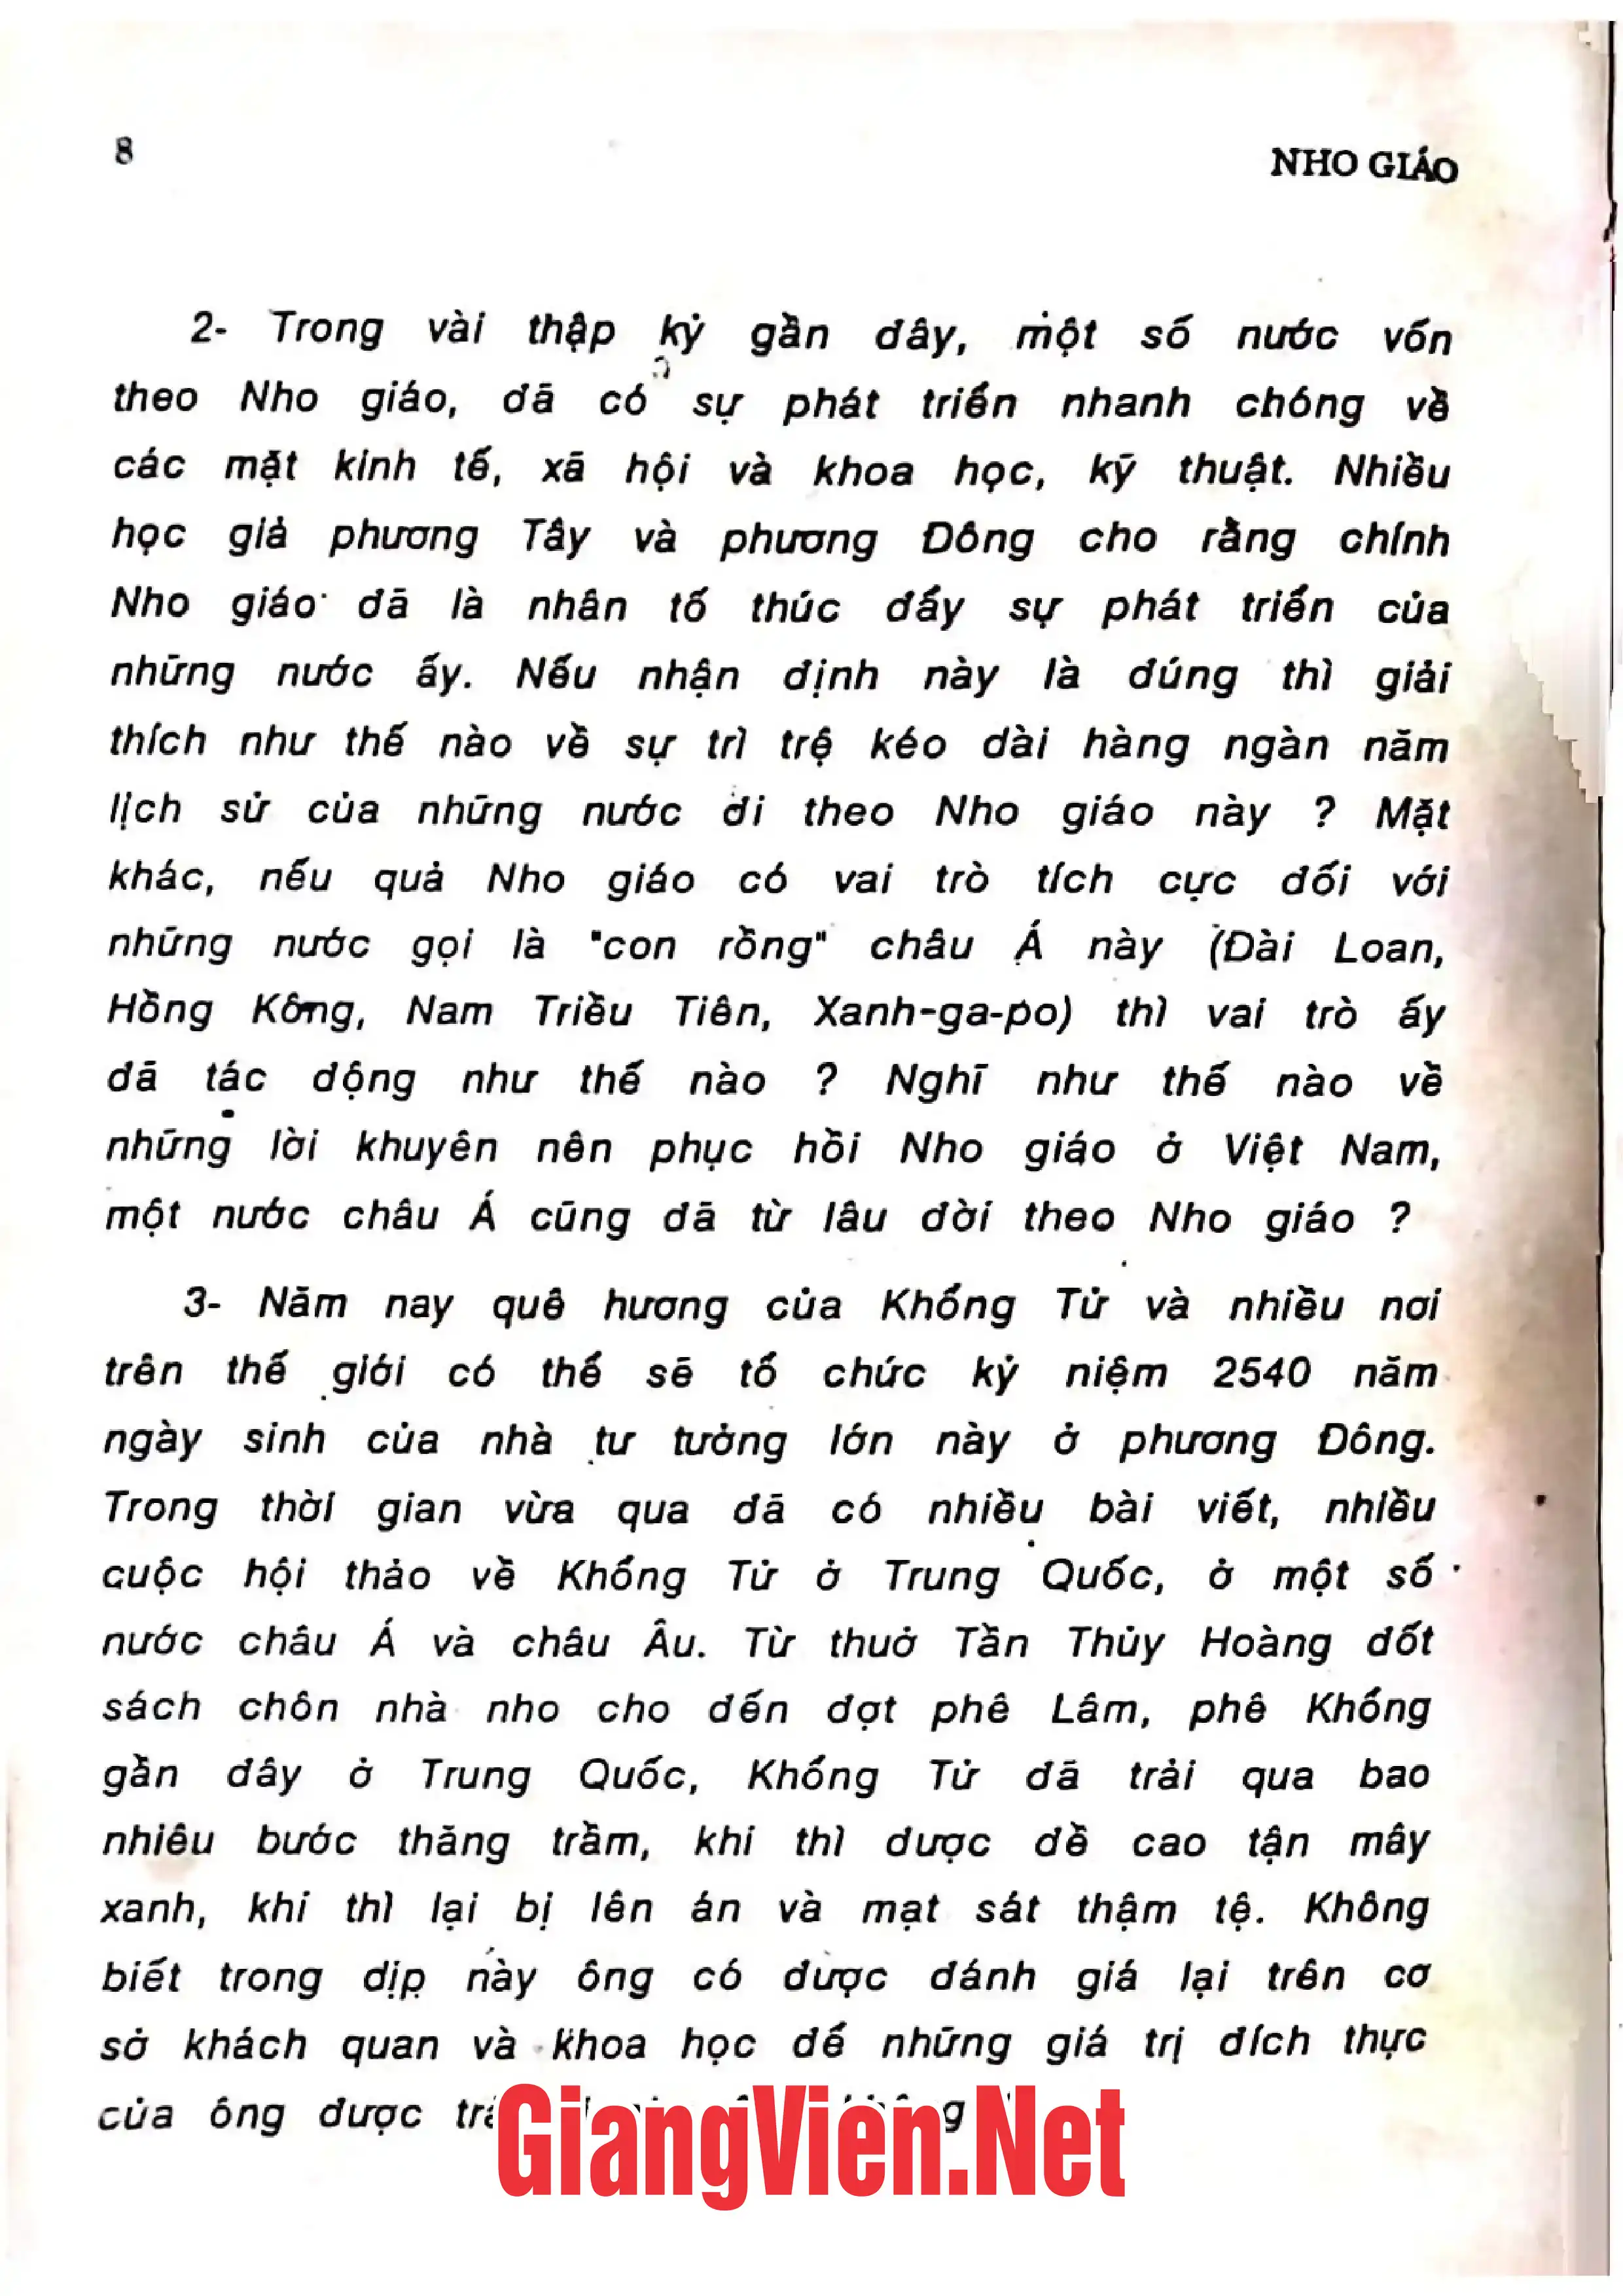 8
NHO GIÁO
2- Trong vài thập kỷ gần đây, một số nước vốn
theo Nho giáo, đã có sự phát triển nhanh chóng về
các mặt kinh tế, xã hội và khoa học, kỹ thuật. Nhiều
học giả phương Tây và phương Đông cho rằng chính
Nho giáo đã là nhân tố thúc đẩy sự phát triển của
những nước ấy. Nếu nhận định này là đúng thì giải
thích như thế nào về sự trì trệ kéo dài hàng ngàn năm
lịch sử của những nước đi theo Nho giáo này ? Mặt
khác, nếu quả Nho giáo có vai trò tích cực đối với
những nước gọi là "con rồng" châu Á này (Đài Loan,
Hồng Kông, Nam Triều Tiên, Xanh-ga-po) thì vai trò ấy
đã tác động như thế nào ? Nghĩ như thế nào về
những lời khuyên nên phục hồi Nho giáo ở Việt Nam,
một nước châu Á cũng đã từ lâu đời theo Nho giáo ?
3- Năm nay quê hương của Khổng Tử và nhiều nơi
trên thế giới có thể sẽ tổ chức kỷ niệm 2540 năm
ngày sinh của nhà tư tưởng lớn này ở phương Đông.
Trong thời gian vừa qua đã có nhiều bài viết, nhiều
cuộc hội thảo về Khổng Tử ở Trung Quốc, ở một số
nước châu Á và châu Âu. Từ thuở Tần Thủy Hoàng đốt
sách chôn nhà nho cho đến đợt phê Lâm, phê Khổng
gần đây ở Trung Quốc, Khổng Tử đã trải qua bao
nhiêu bước thăng trầm, khi thì được đề cao tận mây
xanh, khi thì lại bị lên án và mạt sát thậm tệ. Không
biết trong dịp này ông có được đánh giá lại trên cơ
sở khách quan và khoa học để những giá trị đích thực
của ông được
GiangVien.Net